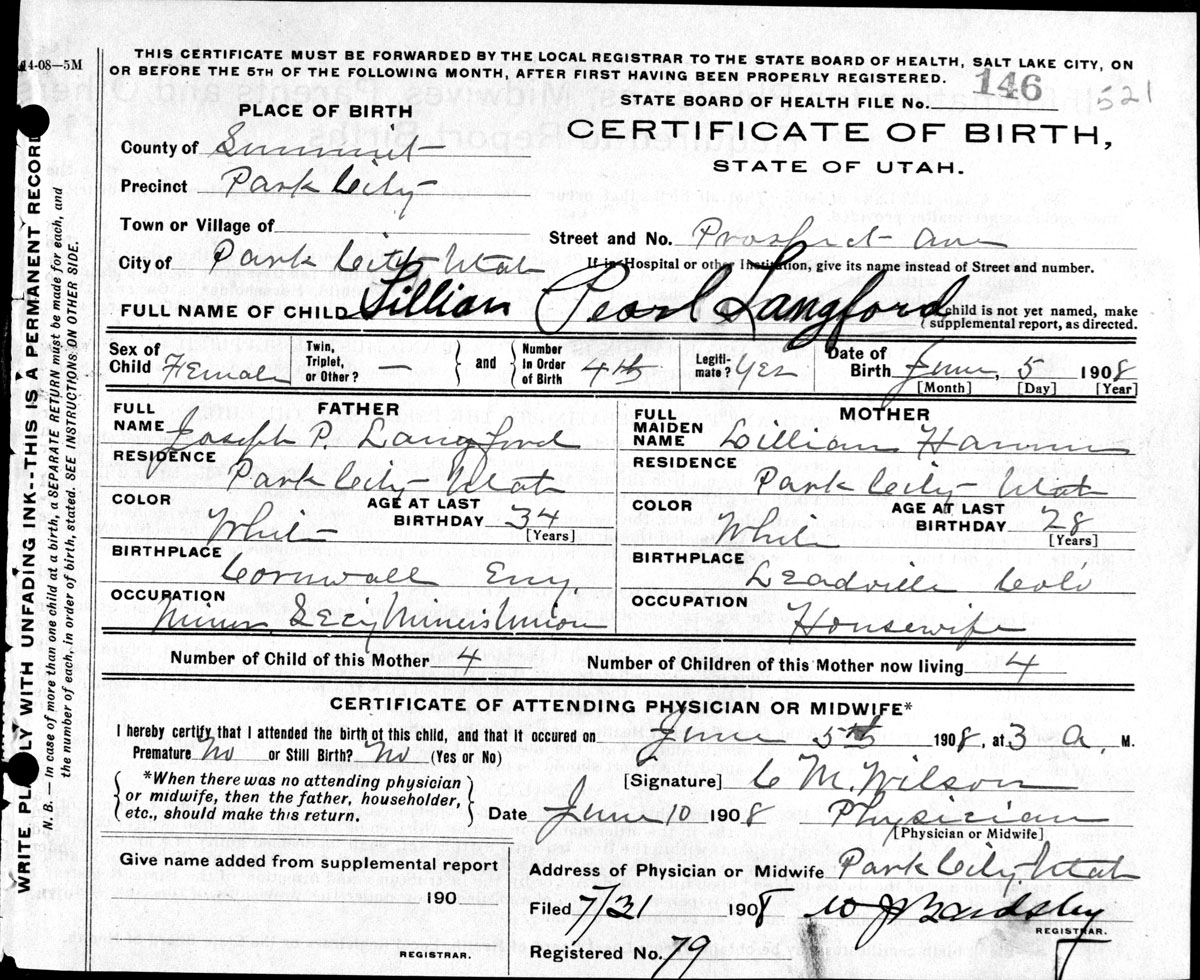 14-08—5M
THIS CERTIFICATE MUST BE FORWARDED BY THE LOCAL REGISTRAR TO THE STATE BOARD OF HEALTH, SALT LAKE CITY, ON
OR BEFORE THE 5TH OF THE FOLLOWING MONTH, AFTER FIRST HAVING BEEN PROPERLY REGISTERED.
STATE BOARD OF HEALTH FILE No. 146 521
PLACE OF BIRTH
CERTIFICATE OF BIRTH,
STATE OF UTAH.
County of Summit
Precinct Park City
Town or Village of
Street and No. Prospect Ave
City of Park City Utah
If in Hospital or other Institution, give its name instead of Street and number.
FULL NAME OF CHILD Lillian Pearl Langford
child is not yet named, make
supplemental report, as directed.
Sex of Child Female
Twin, Triplet, or Other? —
and
Number in Order of Birth 4th
Legiti-mate? Yes
Date of Birth June 5 1908
[Month] [Day] [Year]
FATHER
FULL NAME Joseph P. Langford
RESIDENCE Park City Utah
COLOR White
AGE AT LAST BIRTHDAY 34 [Years]
BIRTHPLACE Cornwall Eng.
OCCUPATION Miner, Secy Miners Union
MOTHER
FULL MAIDEN NAME Lillian
RESIDENCE Park City Utah
COLOR White
AGE AT LAST BIRTHDAY 28 [Years]
BIRTHPLACE Leadville Colo
OCCUPATION Housewife
Number of Child of this Mother 4
Number of Children of this Mother now living 4
CERTIFICATE OF ATTENDING PHYSICIAN OR MIDWIFE*
I hereby certify that I attended the birth of this child, and that it occured on June 5th 1908, at 3 a. M.
Premature No or Still Birth? No (Yes or No)
*When there was no attending physician
or midwife, then the father, householder,
etc., should make this return.
[Signature] C M. Wilson
Date June 10 1908 Physician
[Physician or Midwife]
Give name added from supplemental report
190
REGISTRAR.
Address of Physician or Midwife Park City Utah
Filed 7/31 1908 W J Bardsley
REGISTRAR.
Registered No. 79
WRITE PLAINLY WITH UNFADING INK--THIS IS A PERMANENT RECORD
N. B.—In case of more than one child at a birth, a SEPARATE RETURN must be made for each, and
the number of each, in order of birth, stated. SEE INSTRUCTIONS ON OTHER SIDE.